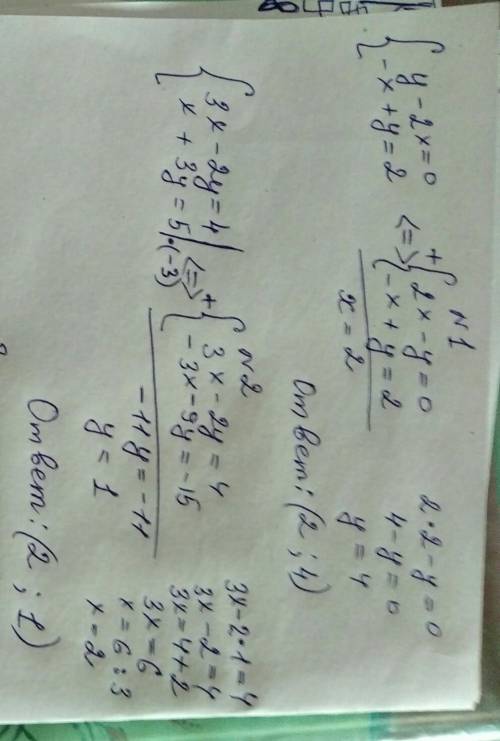 N1
{ y - 2x = 0
-x + y = 2
<=> + { 2x - y = 0
-x + y = 2
x = 2
2·2 - y = 0
4 - y = 0
y = 4
Ответ: (2 ; 4)
N2
{ 3x - 2y = 4
x + 3y = 5 | ·(-3)
<=> + { 3x - 2y = 4
-3x - 9y = -15
-11y = -11
y = 1
3x - 2·1 = 4
3x - 2 = 4
3x = 4 + 2
3x = 6
x = 6 : 3
x = 2
Ответ: (2 ; 1)